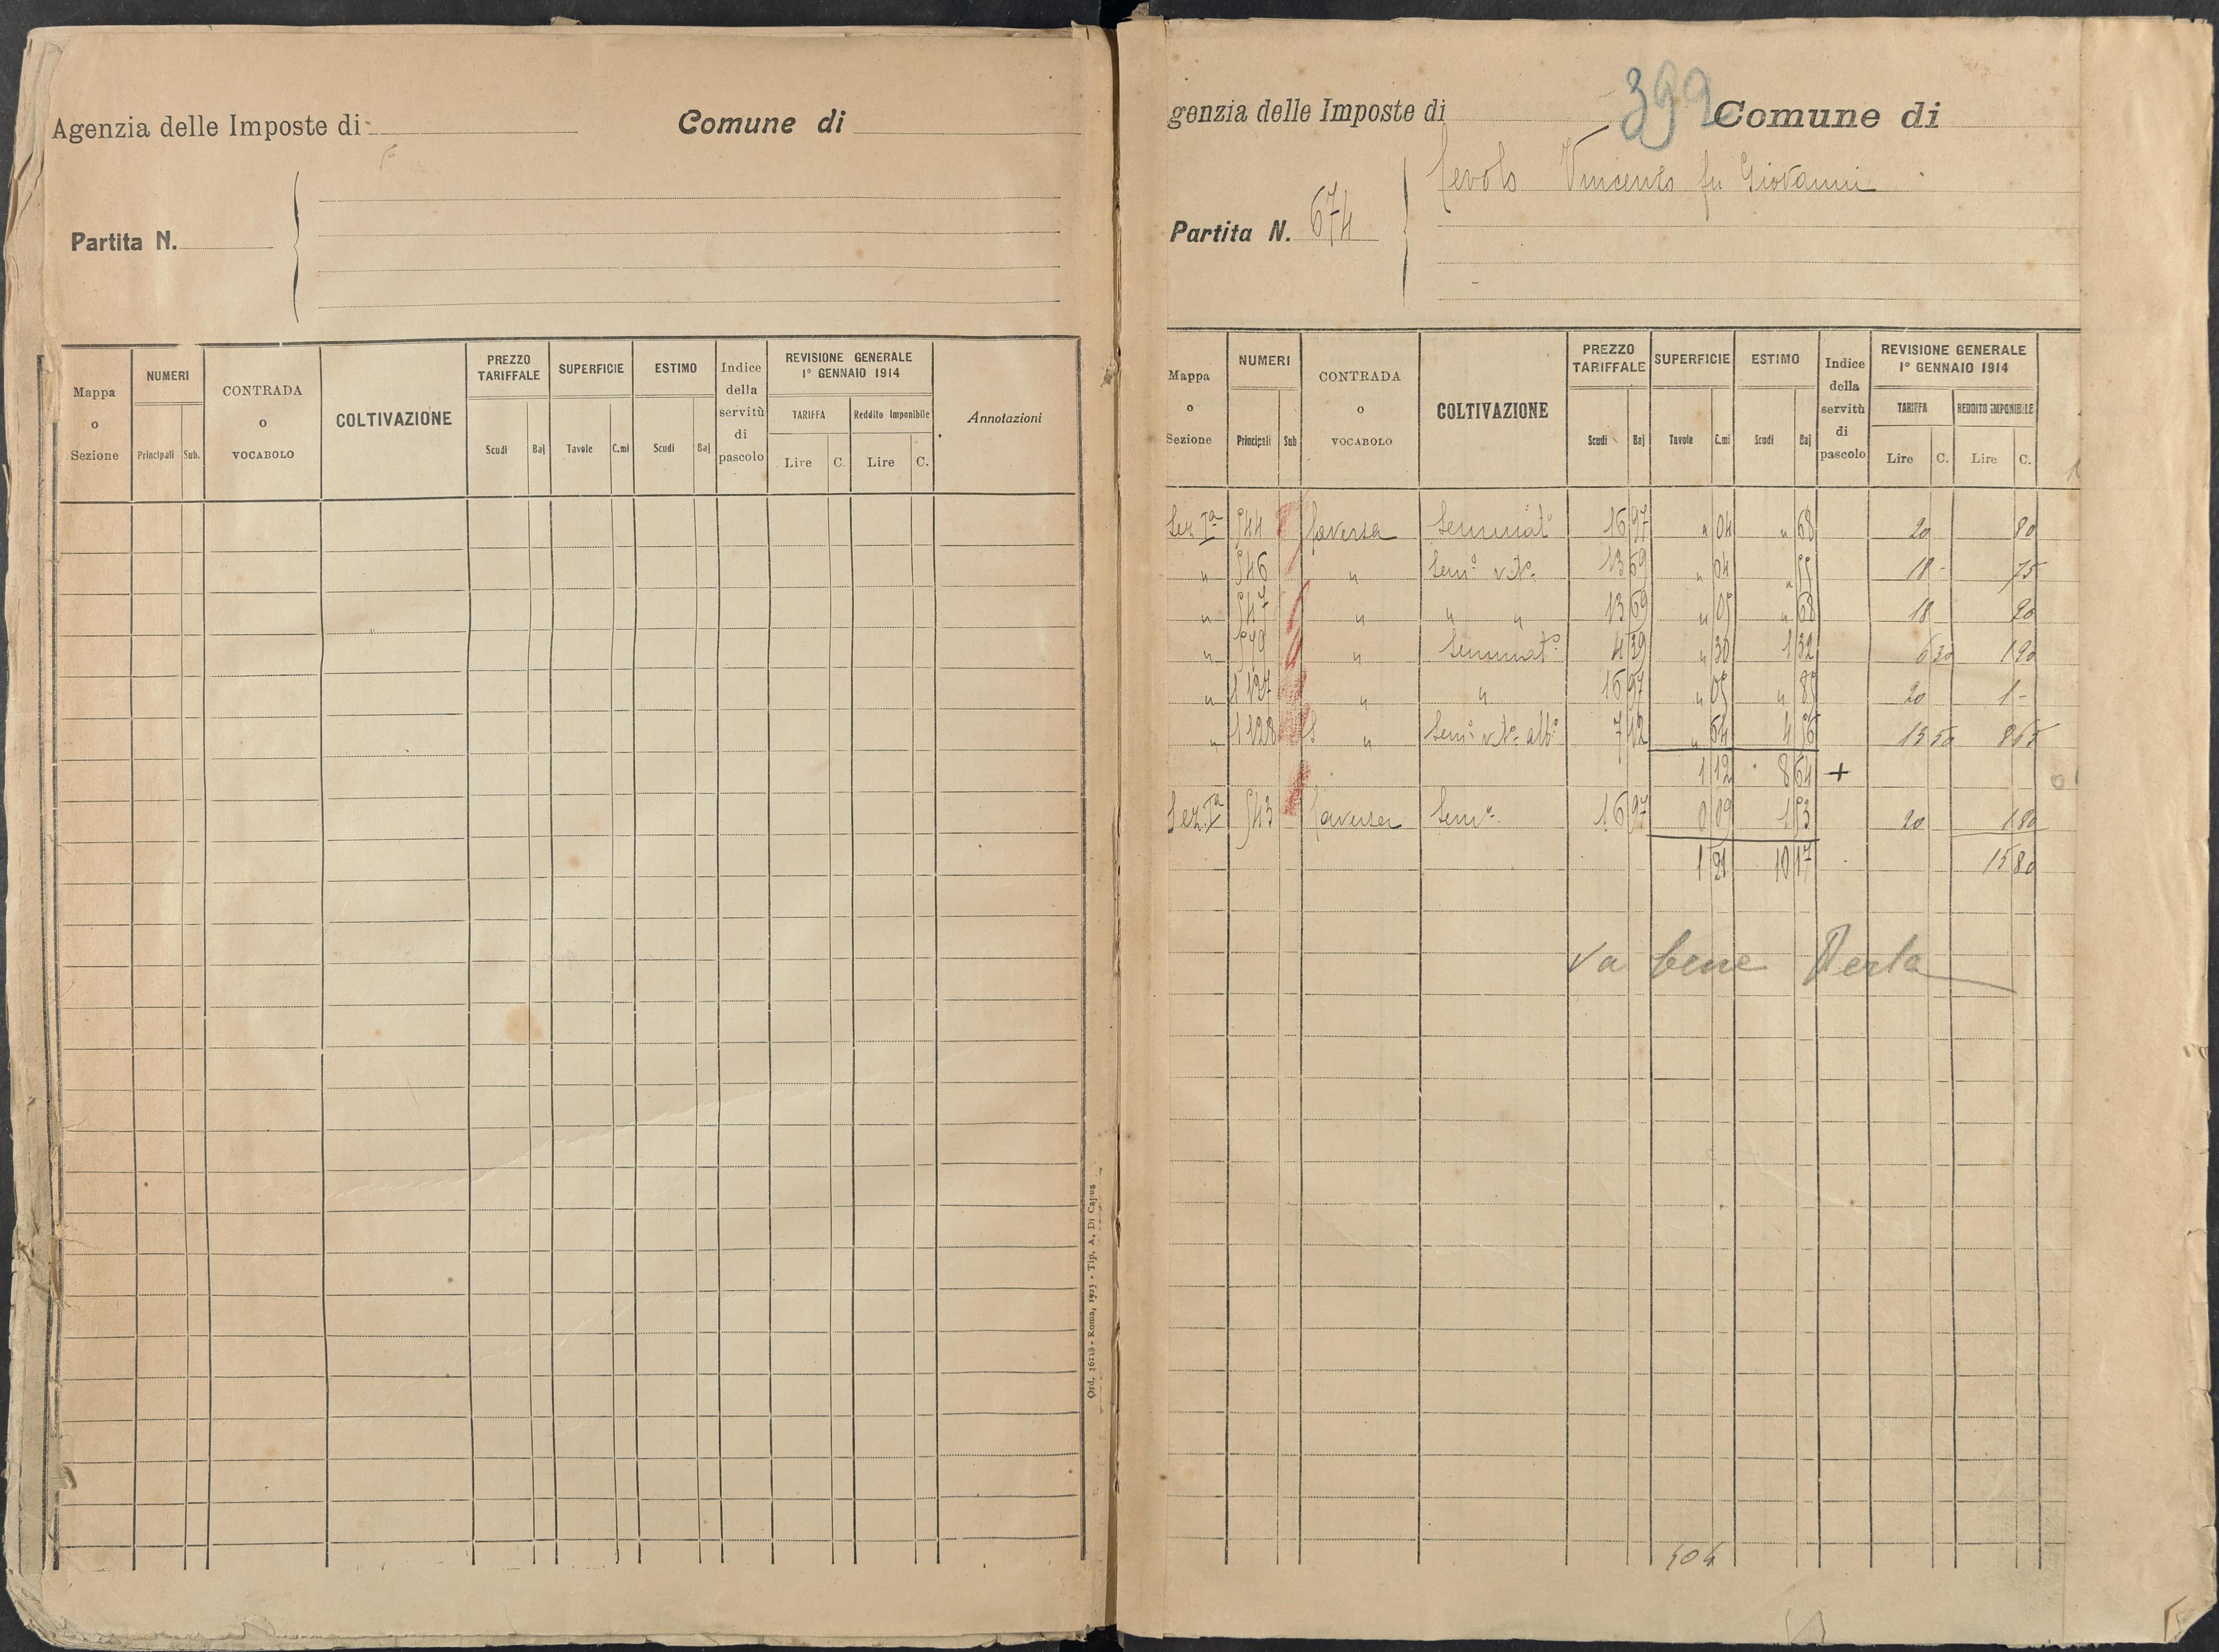 Agenzia delle Imposte di
Comune di
Partita N.
Mappa o Sezione
NUMERI
Principali Sub.
CONTRADA o VOCABOLO
COLTIVAZIONE
PREZZO TARIFFALE
Scudi Baj
SUPERFICIE
Tavole C.mi
ESTIMO
Scudi Baj
Indice della servitù di pascolo
REVISIONE GENERALE 1° GENNAIO 1914
TARIFFA
Lire C.
Reddito Imponibile
Lire C.
Annotazioni
Ord. 16118 - Roma, 1923 - Tip. A. Di Capua
399
genzia delle Imposte di
Comune di
Vincenzo fu Giovanni
Partita N. 674
Mappa o Sezione
NUMERI
Principali Sub
CONTRADA o VOCABOLO
COLTIVAZIONE
PREZZO TARIFFALE
Scudi Baj
SUPERFICIE
Tavole C.mi
ESTIMO
Scudi Baj
Indice della servitù di pascolo
REVISIONE GENERALE 1° GENNAIO 1914
TARIFFA
Lire C.
REDDITO IMPONIBILE
Lire C.
Sez. Iª 544 Seminatº 16 97 " 04 " 68 20 80
" 546 " Semº vtº 13 69 " 04 " 55 18 - 75
" 547 " " " 13 69 " 05 " 68 18 - 90
" " Seminatº 4 39 " 30 1 32 6 30 1 90
" 1127 " " 16 97 " 05 " 85 20 1 -
" 1128 " Semº vtº albº 7 12 " 64 4 56 13 50 8 65
1 12 8 64 +
Sez. Iª 543 Semº 16 97 0 09 1 53 20 1 80
1 21 10 17 15 80
va bene
404